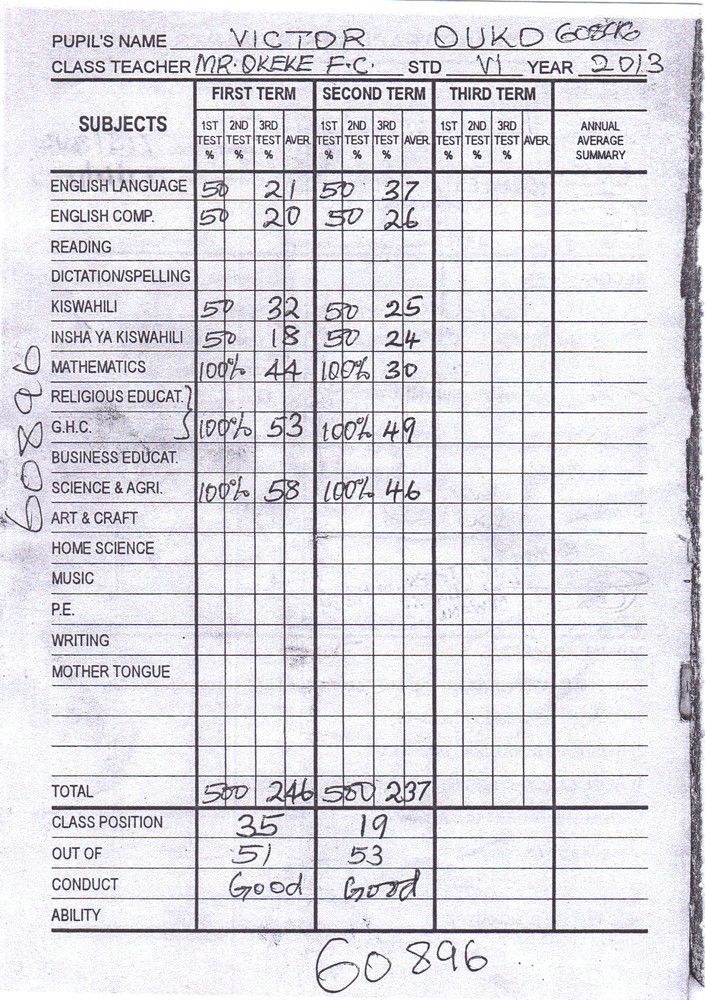 PUPIL'S NAME VICTOR OUKO 60896
CLASS TEACHER MR. OKEKE F.C. STD VI YEAR 2013
SUBJECTS FIRST TERM SECOND TERM THIRD TERM ANNUAL AVERAGE SUMMARY
1ST TEST % 2ND TEST % 3RD TEST % AVER. 1ST TEST % 2ND TEST % 3RD TEST % AVER. 1ST TEST % 2ND TEST % 3RD TEST % AVER.
ENGLISH LANGUAGE 50 21 50 37
ENGLISH COMP. 50 20 50 26
READING
DICTATION/SPELLING
KISWAHILI 50 32 50 25
INSHA YA KISWAHILI 50 18 50 24
MATHEMATICS 100% 44 100% 30
RELIGIOUS EDUCAT.
G.H.C. 100% 53 100% 49
BUSINESS EDUCAT.
SCIENCE & AGRI. 100% 58 100% 46
ART & CRAFT
HOME SCIENCE
MUSIC
P.E.
WRITING
MOTHER TONGUE
TOTAL 500 246 500 237
CLASS POSITION 35 19
OUT OF 51 53
CONDUCT Good Good
ABILITY
60896
60896